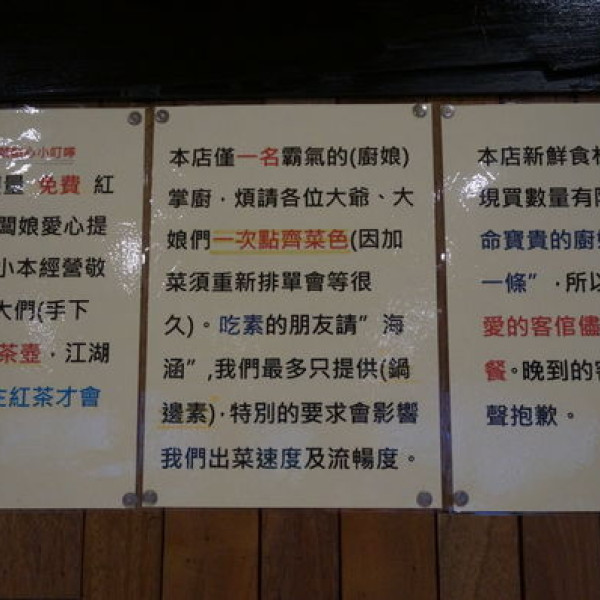 心小叮嚀
免費 紅
闆娘愛心提
小本經營敬
大們(手下
茶壺，江湖
紅茶才會
本店僅一名霸氣的(廚娘)
掌廚，煩請各位大爺、大
娘們一次點齊菜色(因加
菜須重新排單會等很
久)。吃素的朋友請”海
涵”,我們最多只提供(鍋
邊素)，特別的要求會影響
我們出菜速度及流暢度。
本店新鮮食材
現買數量有限
命寶貴的廚
一條”，所以
愛的客倌儘
餐。晚到的客
聲抱歉。